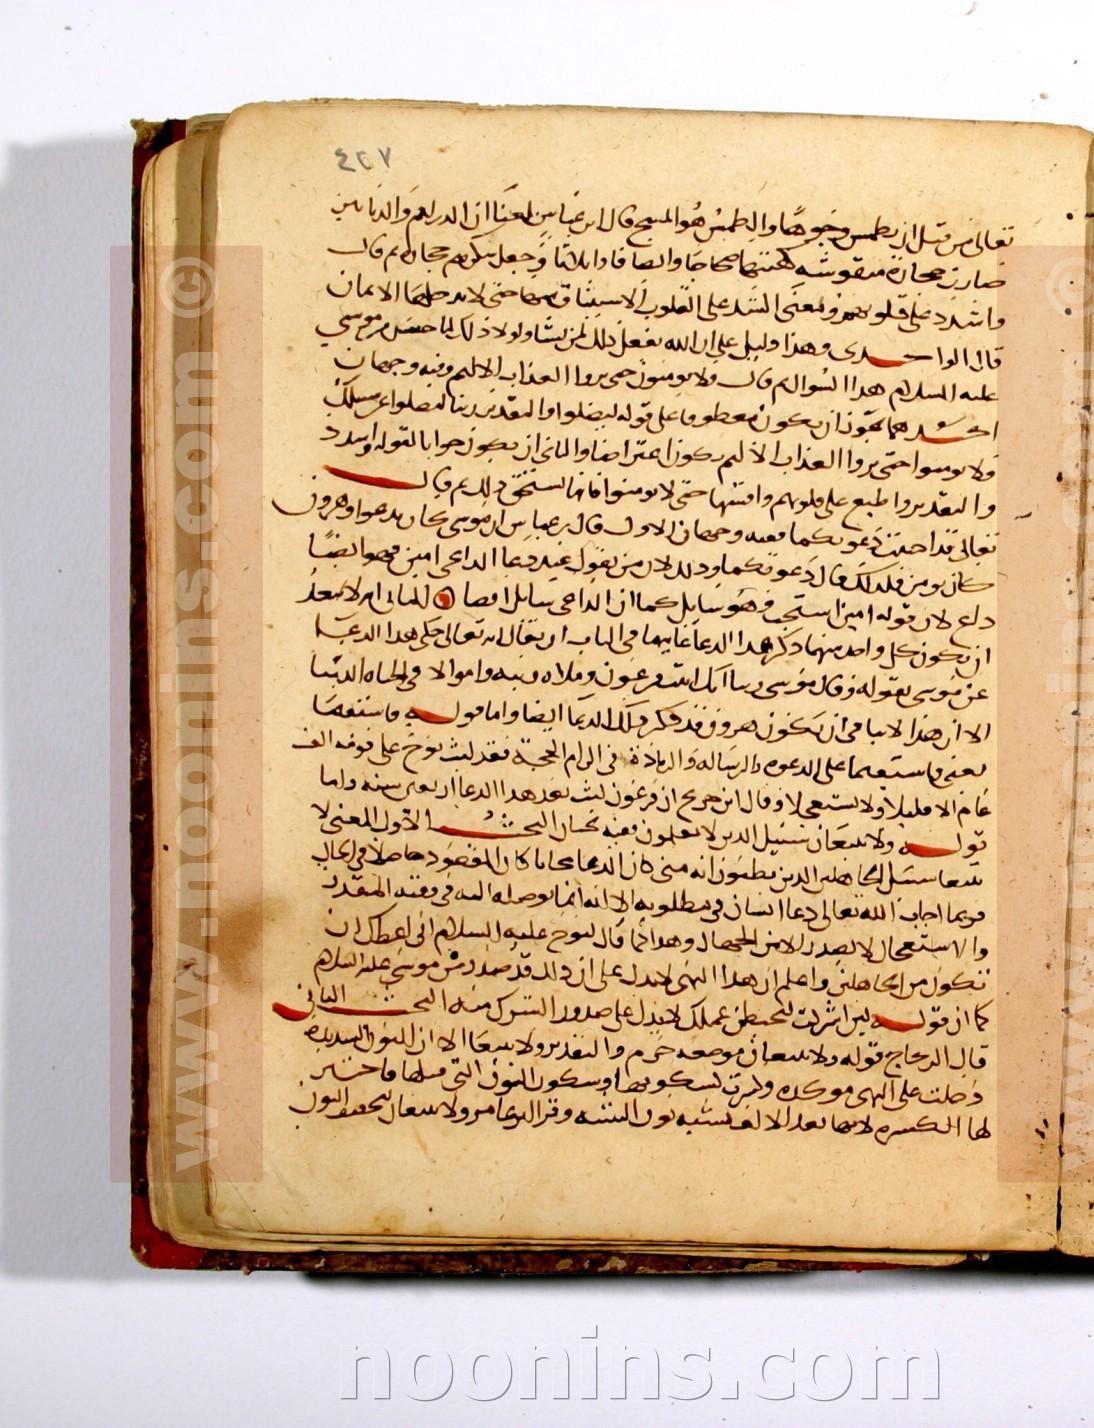 ٤٢٧
تعالى من قبل ان نطمس وجوها والطمس هو المسخ قال ابن عباس بلغنا ان الدراهم والدنانير
صارت حجارة منقوشه كهيئتها صحاحا وانصافا واثلاثا وجعل سكرهم حجارة ثم قال
واشدد على قلوبهم ومعنى الشد على القلوب الاستيثاق منها حتى لا يدخلها الايمان
قال الواحدى وهذا دليل على ان الله يفعل ذلك لمن يشا ولولا ذلك لما حسن من موسى
عليه السلام هذا السوال ثم قال فلا يومنوا حتى يروا العذاب الاليم وفيه وجهان
احدهما يجوز ان يكون معطوفا على قوله ليضلوا والتقدير ربنا ليضلوا عن سبيلك
فلا يومنوا حتى يروا العذاب الاليم يكون اعتراضا والثانى ان يكون جوابا لقوله واشدد
والتقدير واطبع على قلوبهم وقسها حتى لا يومنوا فانها تستحق ذلك ثم قال
تعالى قد اجيبت دعوتكما وفيه وجهان الاول قال ابن عباس ان موسى كان يدعوا وهرون
كان يومن فلذلك قال دعوتكما وذلك لان من يقول عند دعا الداعى امين فهو ايضا
داع لان قوله امين استجب فهو سايل كما ان الداعى سايل ايضا الثانى انه لا يبعد
ان يكون كل واحد منهما ذكر هذا الدعا غايه ما فى الباب ان يقال انه تعالى حكى هذا الدعا
عن موسى بقوله وقال موسى ربنا انك اتيت فرعون وملاه زينه واموالا فى الحياه الدنيا
الا ان هذا لا ينافى ان يكون هرون قد ذكر ذلك الدعا ايضا واما قوله فاستقيما
يعنى فاستقيما على الدعوه والرساله والزيادة فى الزام الحجة فقد لبث نوح على قومه الف
عام الا قليلا ولا تستعجلا وقال ابن جريج ان فرعون لبث بعد هذا الدعا اربعين سنه واما
قوله ولا تتبعان سبيل الذين لا يعلمون ففيه بحثان البحث الاول المعنى لا
تتبعا سبيل الجاهلين الذين يظنون انه متى كان الدعا مجابا كان المقصود حاصلا فى الحال
فربما اجاب الله تعالى دعا انسان فى مطلوبه الا انه انما يوصله اليه فى وقته المقدر
والاستعجال لا يصدر الا من الجهال وهذا كما قال لنوح عليه السلام انى اعظك ان
تكون من الجاهلين واعلم ان هذا النهى لا يدل على ان ذلك قد صدر من موسى عليه السلام
كما ان قوله لين اشركت ليحبطن عملك لا يدل على صدور الشرك منه البحث الثانى
قال الزجاج قوله ولا تتبعان موضعه جزم والتقدير ولا تتبعا الا ان النون الشديده
دخلت على النهى موكده وكسرت لسكونها وسكون النون التى قبلها فاختير
لها الكسره لانها بعد الالف تشبه نون التثنيه وقرا ابن عامر ولا تتبعان بتخفيف النون
www.noonins.com ©
noonins.com